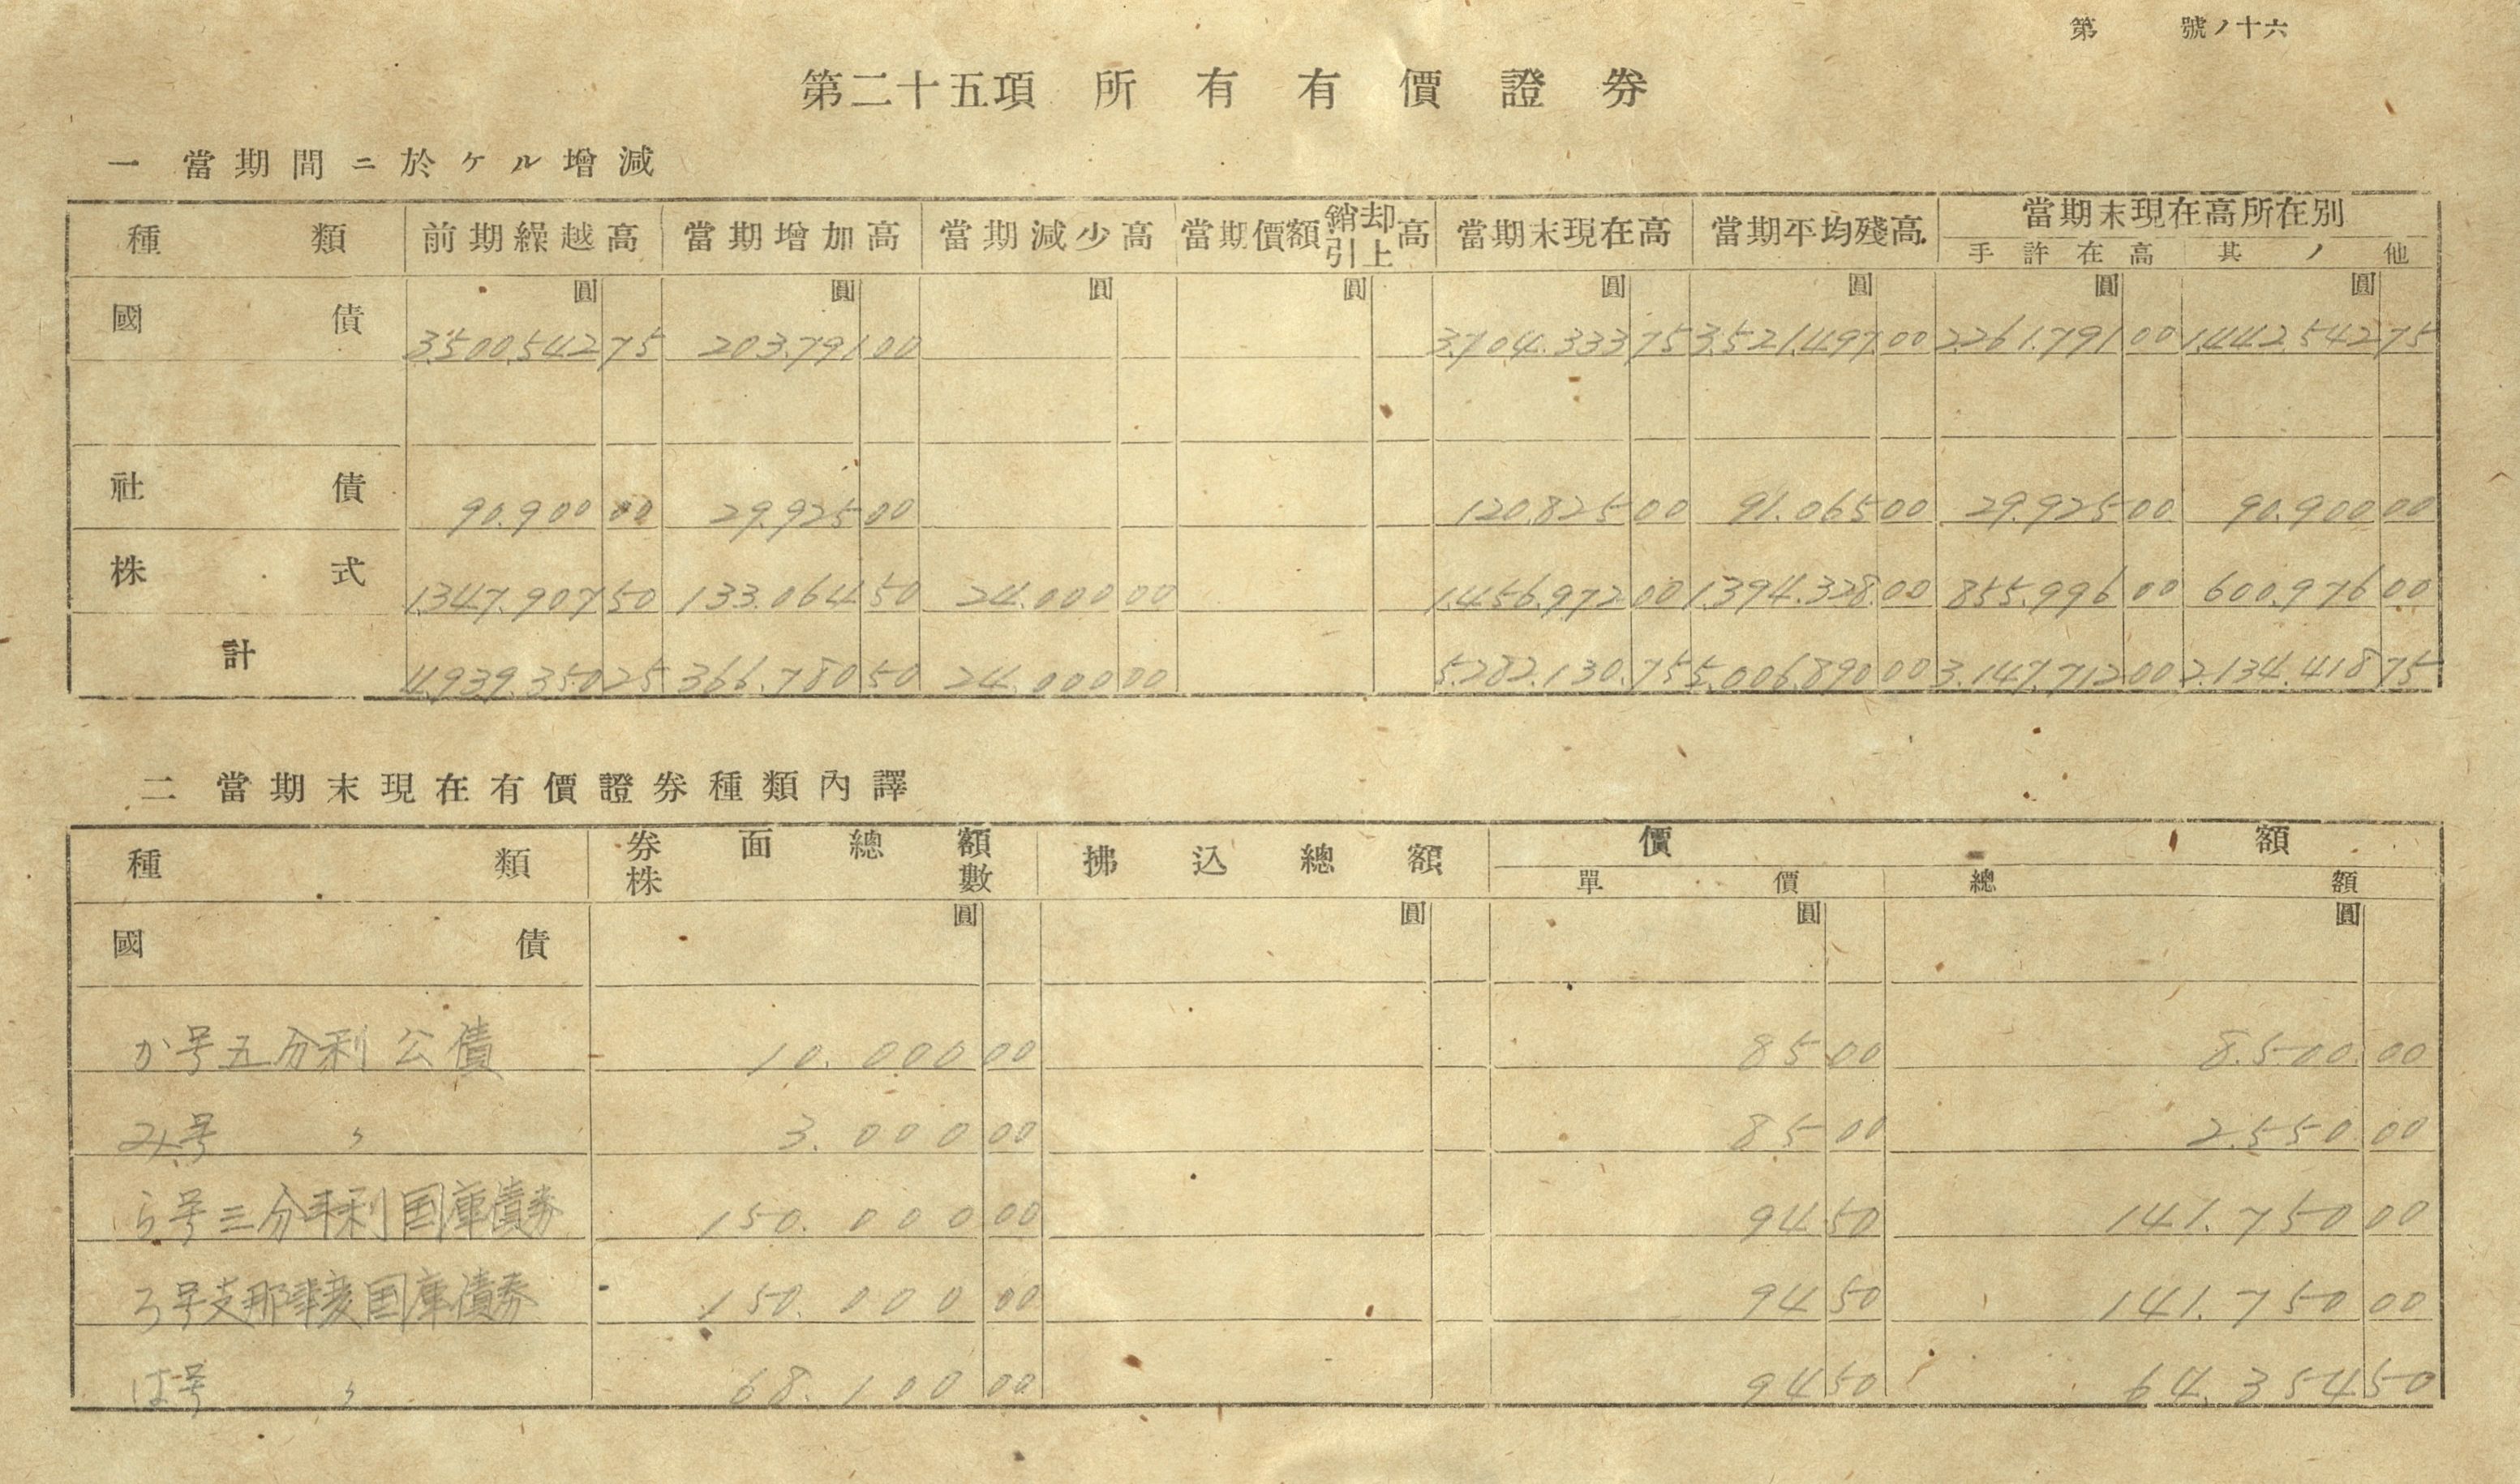 第 號ノ十六
第二十五項 所有有價證券
一 當期間ニ於ケル增減
種類 前期繰越高 當期增加高 當期減少高 當期價額銷却引上高 當期末現在高 當期平均殘高 當期末現在高所在別
手許在高 其ノ他
圓 圓 圓 圓 圓 圓 圓 圓
國債 3,500,542 75 203,791 00 3,704,333 75 3,521,497 00 2,261,791 00 1,442,542 75
社債 90,900 00 29,925 00 120,825 00 91,065 00 29,925 00 90,900 00
株式 1,347,907 50 133,064 50 24,000 00 1,456,972 00 1,394,328 00 855,996 00 600,976 00
計 4,939,350 25 366,780 50 24,000 00 5,282,130 75 5,006,890 00 3,147,712 00 2,134,418 75
二 當期末現在有價證券種類內譯
種類 券面總額 株數 拂込總額 價額
單價 總額
圓 圓 圓 圓
國債
か号五分利公債 10,000 00 85 00 8,500 00
み号 〃 3,000 00 85 00 2,550 00
ら号三分半利国庫債券 150,000 00 94 50 141,750 00
ろ号支那事変国庫債券 150,000 00 94 50 141,750 00
は号 〃 68,100 00 94 50 64,354 50